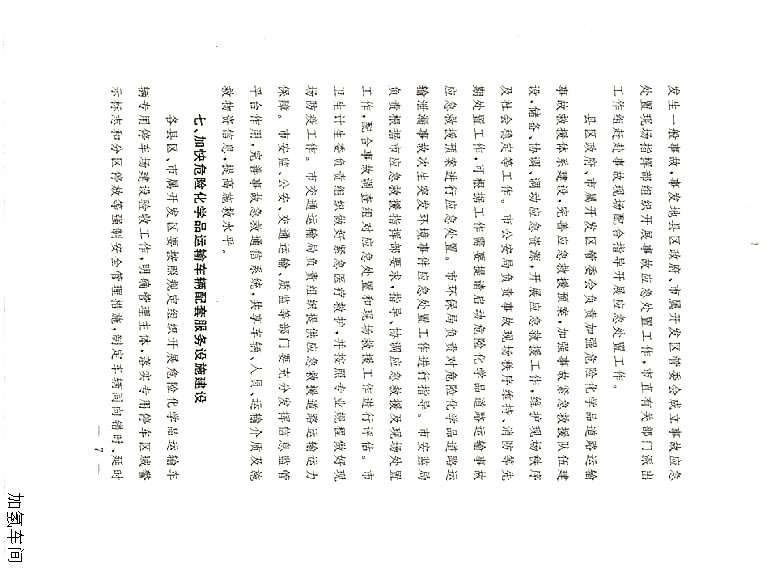 发生一般事故，事发地县区政府、市属开发区管委会成立事故应急
处置现场指挥部组织开展事故应急处置工作，市直有关部门派出
工作组赶赴事故现场配合指导开展应急处置工作。
县区政府、市属开发区管委会负责加强危险化学品道路运输
事故救援体系建设，完善应急救援预案，加强事故紧急救援队伍建
设，储备、协调、调动应急资源，开展应急救援工作，维护现场秩序
及社会稳定等工作。市公安局负责事故现场秩序维持、消防等先
期处置工作，可根据工作需要提请启动危险化学品道路运输事故
应急救援预案进行应急处置。市环保局负责对危险化学品道路运
输泄漏事故次生突发环境事件应急处置工作进行指导。市安监局
负责根据市应急救援指挥部要求，指导、协调应急救援及现场处置
工作，配合事故调查组对应急处置和现场救援工作进行评估。市
卫生计生委负责组织做好紧急医疗救护，并按照专业规程做好现
场防疫工作。市交通运输局负责组织提供应急救援道路运输运力
保障。市安监、公安、交通运输、质监等部门要充分发挥信息监管
平台作用，完善事故急救通信系统，共享车辆、人员、运输介质及施
救物资信息，提高施救水平。
七、加快危险化学品运输车辆配套服务设施建设
各县区、市属开发区要按照规定组织开展危险化学品运输车
辆专用停车场建设验收工作，明确管理主体，落实专用停车区域警
示标志和分区停放等强制安全管理措施，制定车辆间向错时、延时
— 7 —
加氢车间